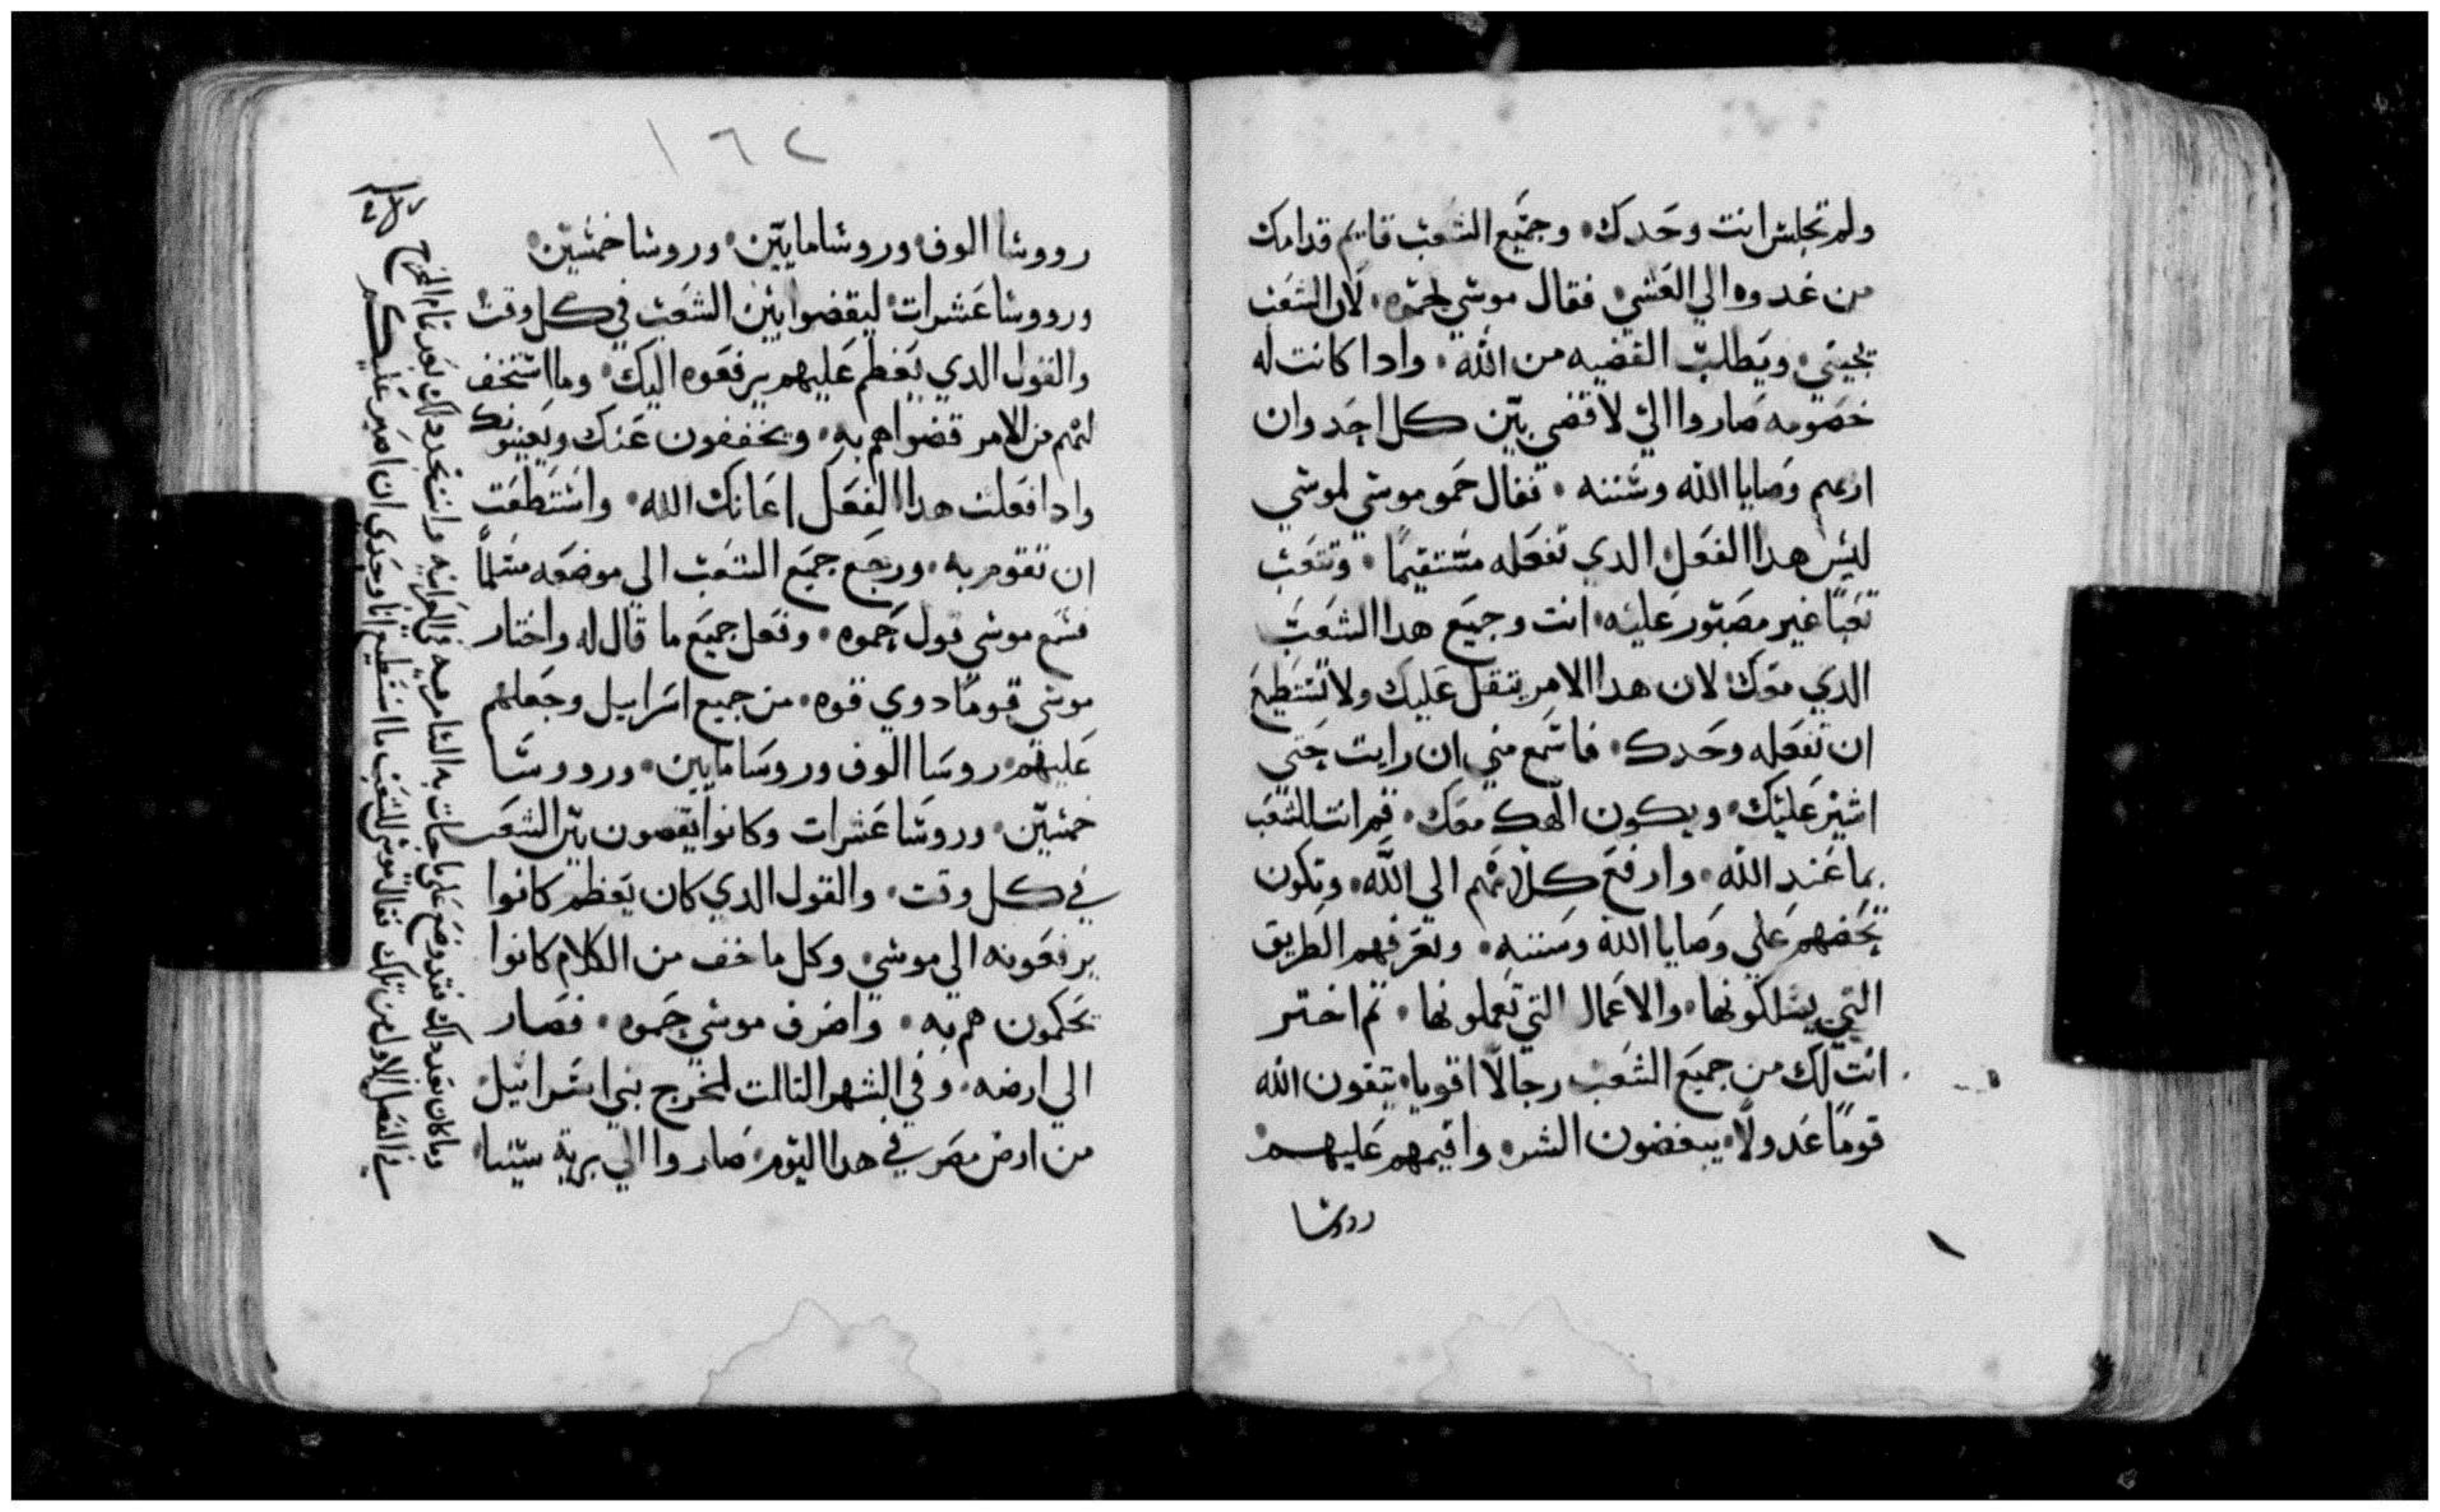 ولم تجلس انت وحدك وجميع الشعب قايم قدامك
من غدوه الي العشي فقال موسي لحموه لان الشعب
يجيني ويطلب القضيه من الله واداكانت له
خصومه صاروا الي لاقضي بين كل احد وان
ارىهم وصايا الله وسننه فقال حمو موسي لموسي
ليس هدا الفعل الدي تفعله مستقيمًا وتتعب
تعبًا غير مصبور عليه انت وجميع هدا الشعب
الدي معك لان هدا الامر يتقل عليك ولا تستطيع
ان تفعله وحدك فاسمع مني ان رايت حتي
اشير عليك ويكون الهك معك قم انت للشعب
بما عند الله وارفع كلامهم الي الله وتكون
تحضهم علي وصايا الله وسننه وتعرفهم الطريق
التي يسلكونها والاعمال التي تعملونها تم اختر
انت لك من جميع الشعب رجالًا اقويا يتقون الله
قومًا عدولًا يبغضون الشر واقيمهم عليهم
رووسا
١٦٢
رووسا الوف وروسا مايين وروسا خمسين
ورووسا عشرات ليقضوا بين الشعب في كل وقت
والقول الدي يعظم عليهم يرفعوه اليك وما استخف
لهم من الامر قضوا هم به ويخففون عنك ويعينونك
وادا فعلت هدا الفعل اعانك الله واستطعت
ان تقوم به ورجع جميع الشعب الي موضعه مسلمًا
فسمع موسي قول حموه وفعل جميع ما قال له واختار
موسي قومًا دوي قوه من جميع اسراييل وجعلهم
عليهم روسا الوف وروسا مايين ورووسا
خمسين وروسا عشرات وكانوا يقصون بين الشعب
في كل وقت والقول الدي كان يعظم كانوا
يرفعونه الي موسي وكل ما خف من الكلام كانوا
يحكمون هم به واصرف موسي حموه فصار
الي ارضه وفي الشهر التالت لمخرج بني اسراييل
من ارض مصر في هدا اليوم صاروا الي برية سينا
وما كان بعد دلك فقد وضع علي ما جات به السامريه في العبرانيه وانت تجد دلك بعد تمام الخرج
في الفصل الاول من تلك فقال موسي للشعب ما استطيع انا وحدي ان اصبر عليكم